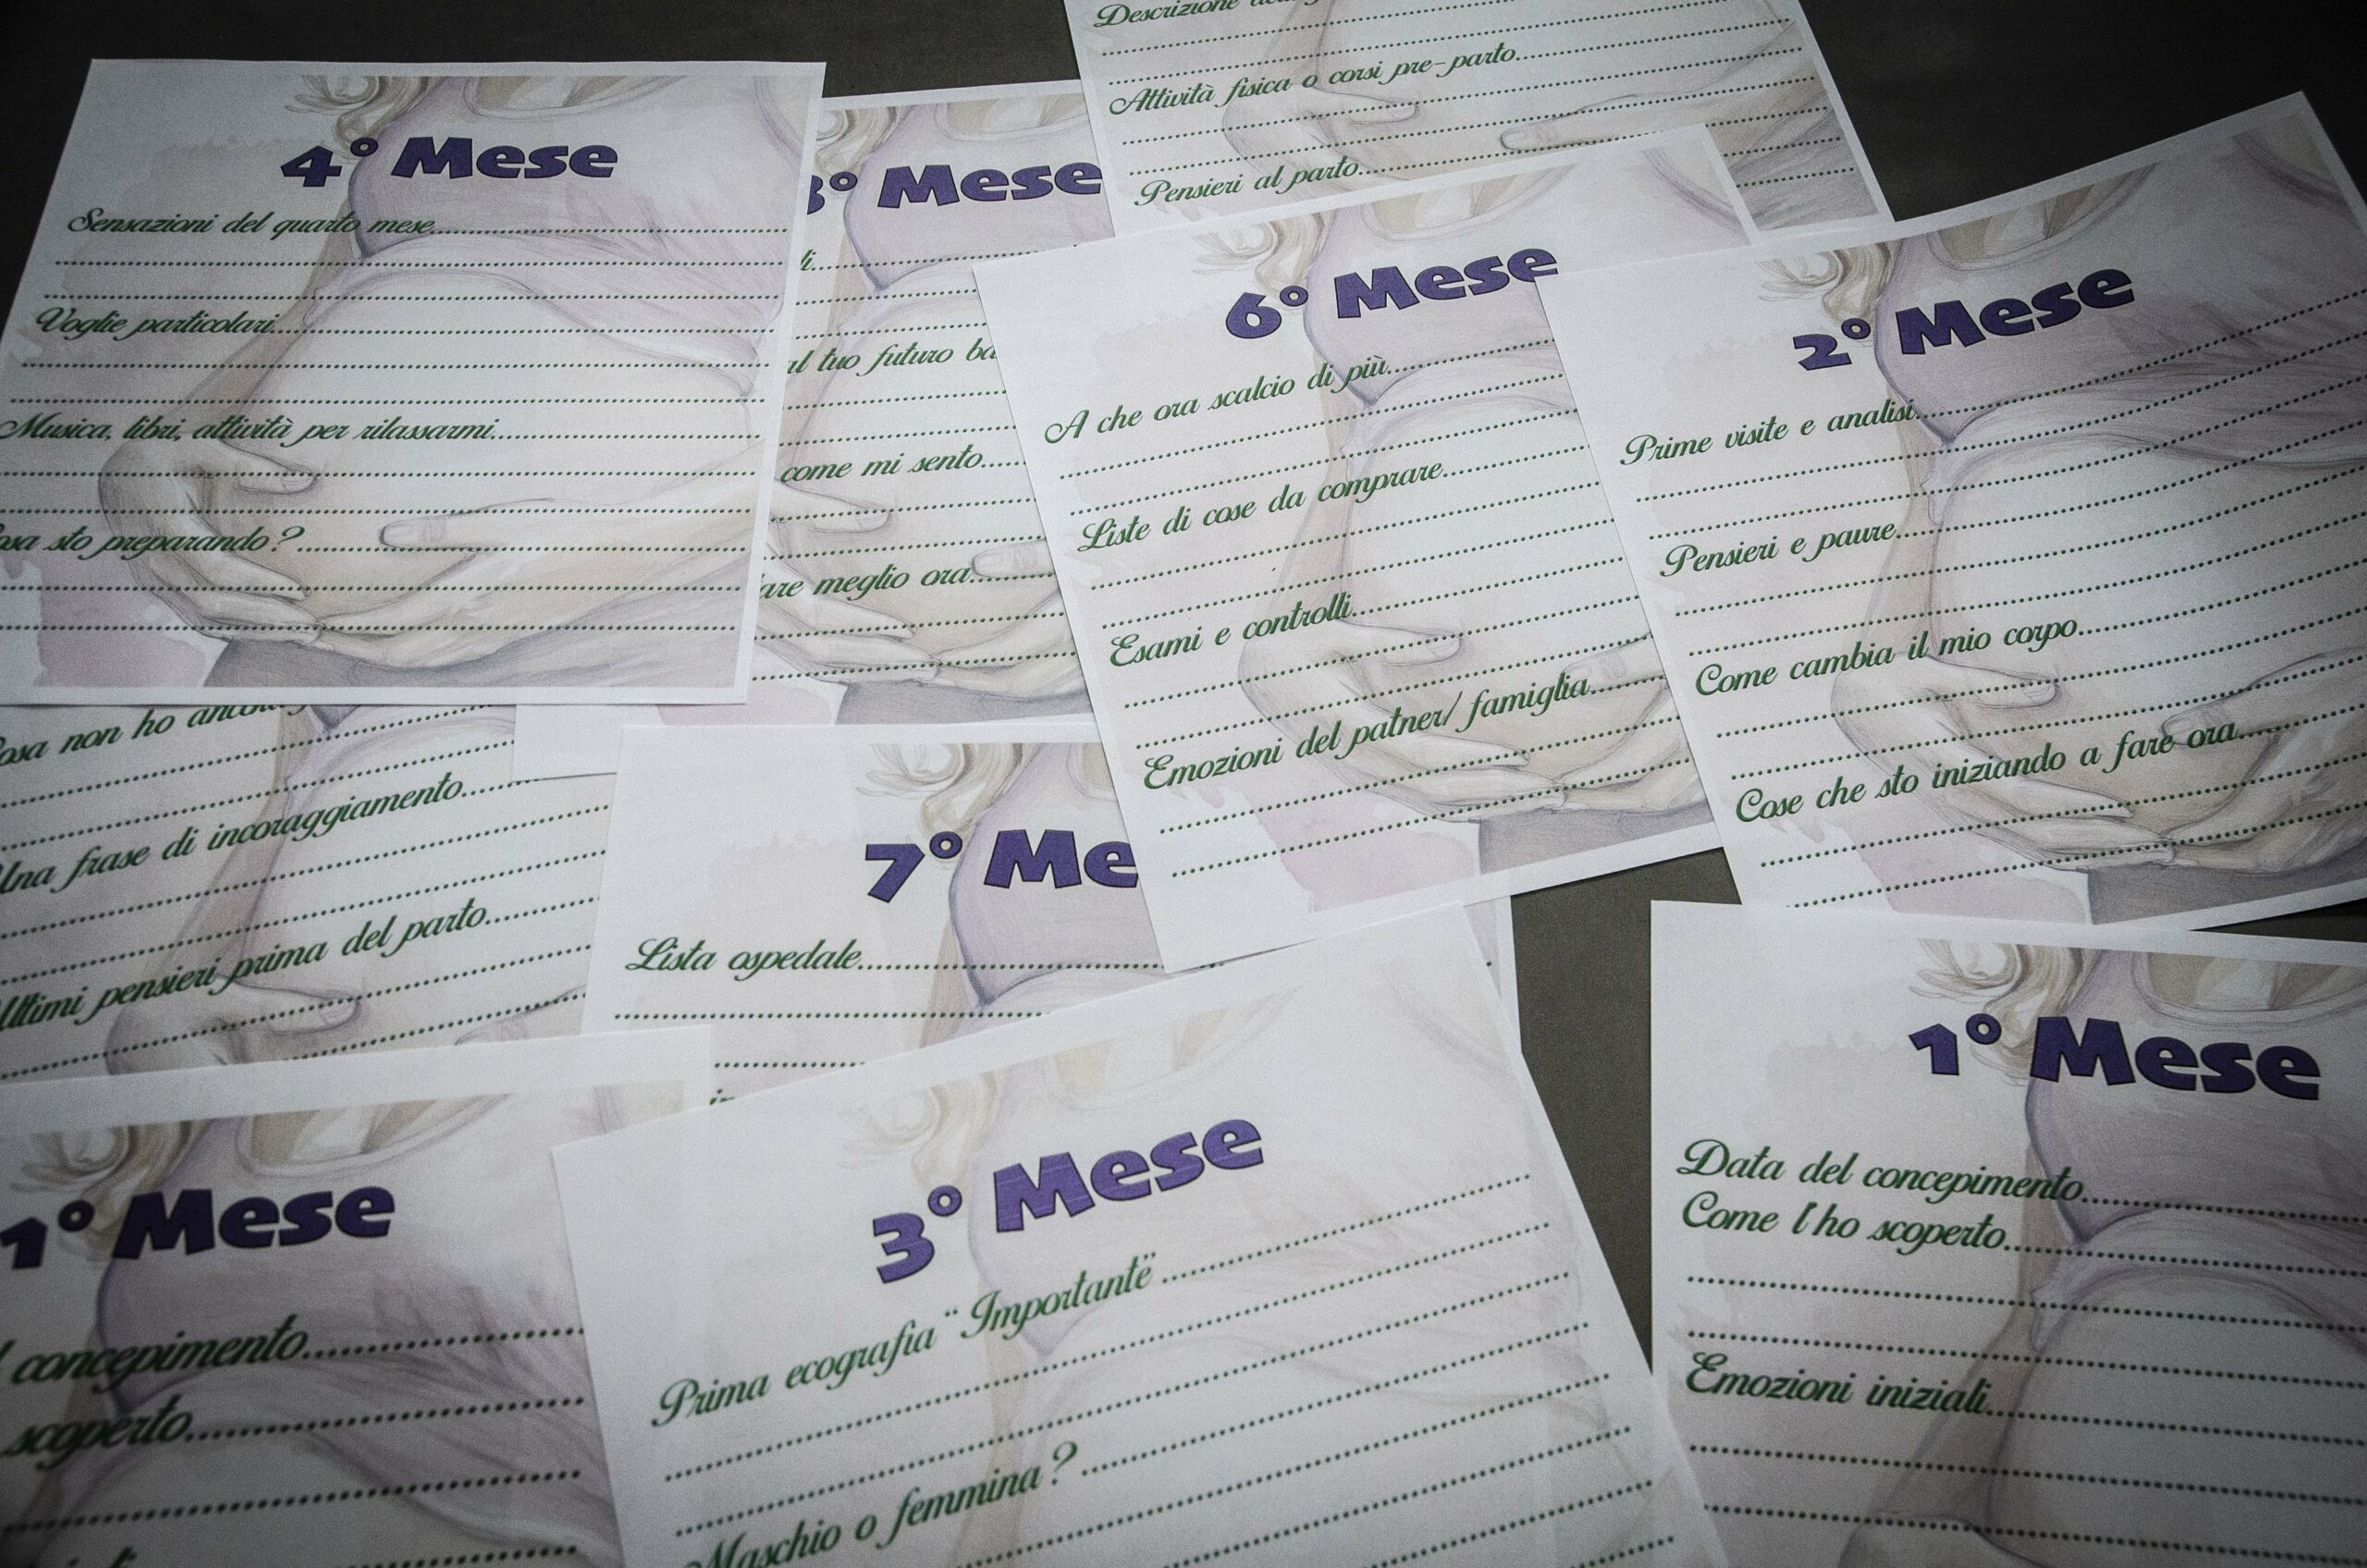 Descrizione
Attività fisica o corsi pre-parto
Pensieri al parto
4° Mese
Sensazioni del quarto mese
Voglie particolari
Musica, libri, attività per rilassarmi
sto preparando?
3° Mese
al tuo futuro
come mi sento
meglio ora
6° Mese
A che ora scalcio di più
Liste di cose da comprare
Esami e controlli
Emozioni del patner/ famiglia
2° Mese
Prime visite e analisi
Pensieri e paure
Come cambia il mio corpo
Cose che sto iniziando a fare ora
non ho
Una frase di incoraggiamento
Ultimi pensieri prima del parto
7° Me
Lista ospedale
1° Mese
concepimento
scoperto
3° Mese
Prima ecografia "Importante"
Maschio o femmina?
1° Mese
Data del concepimento
Come l'ho scoperto
Emozioni iniziali